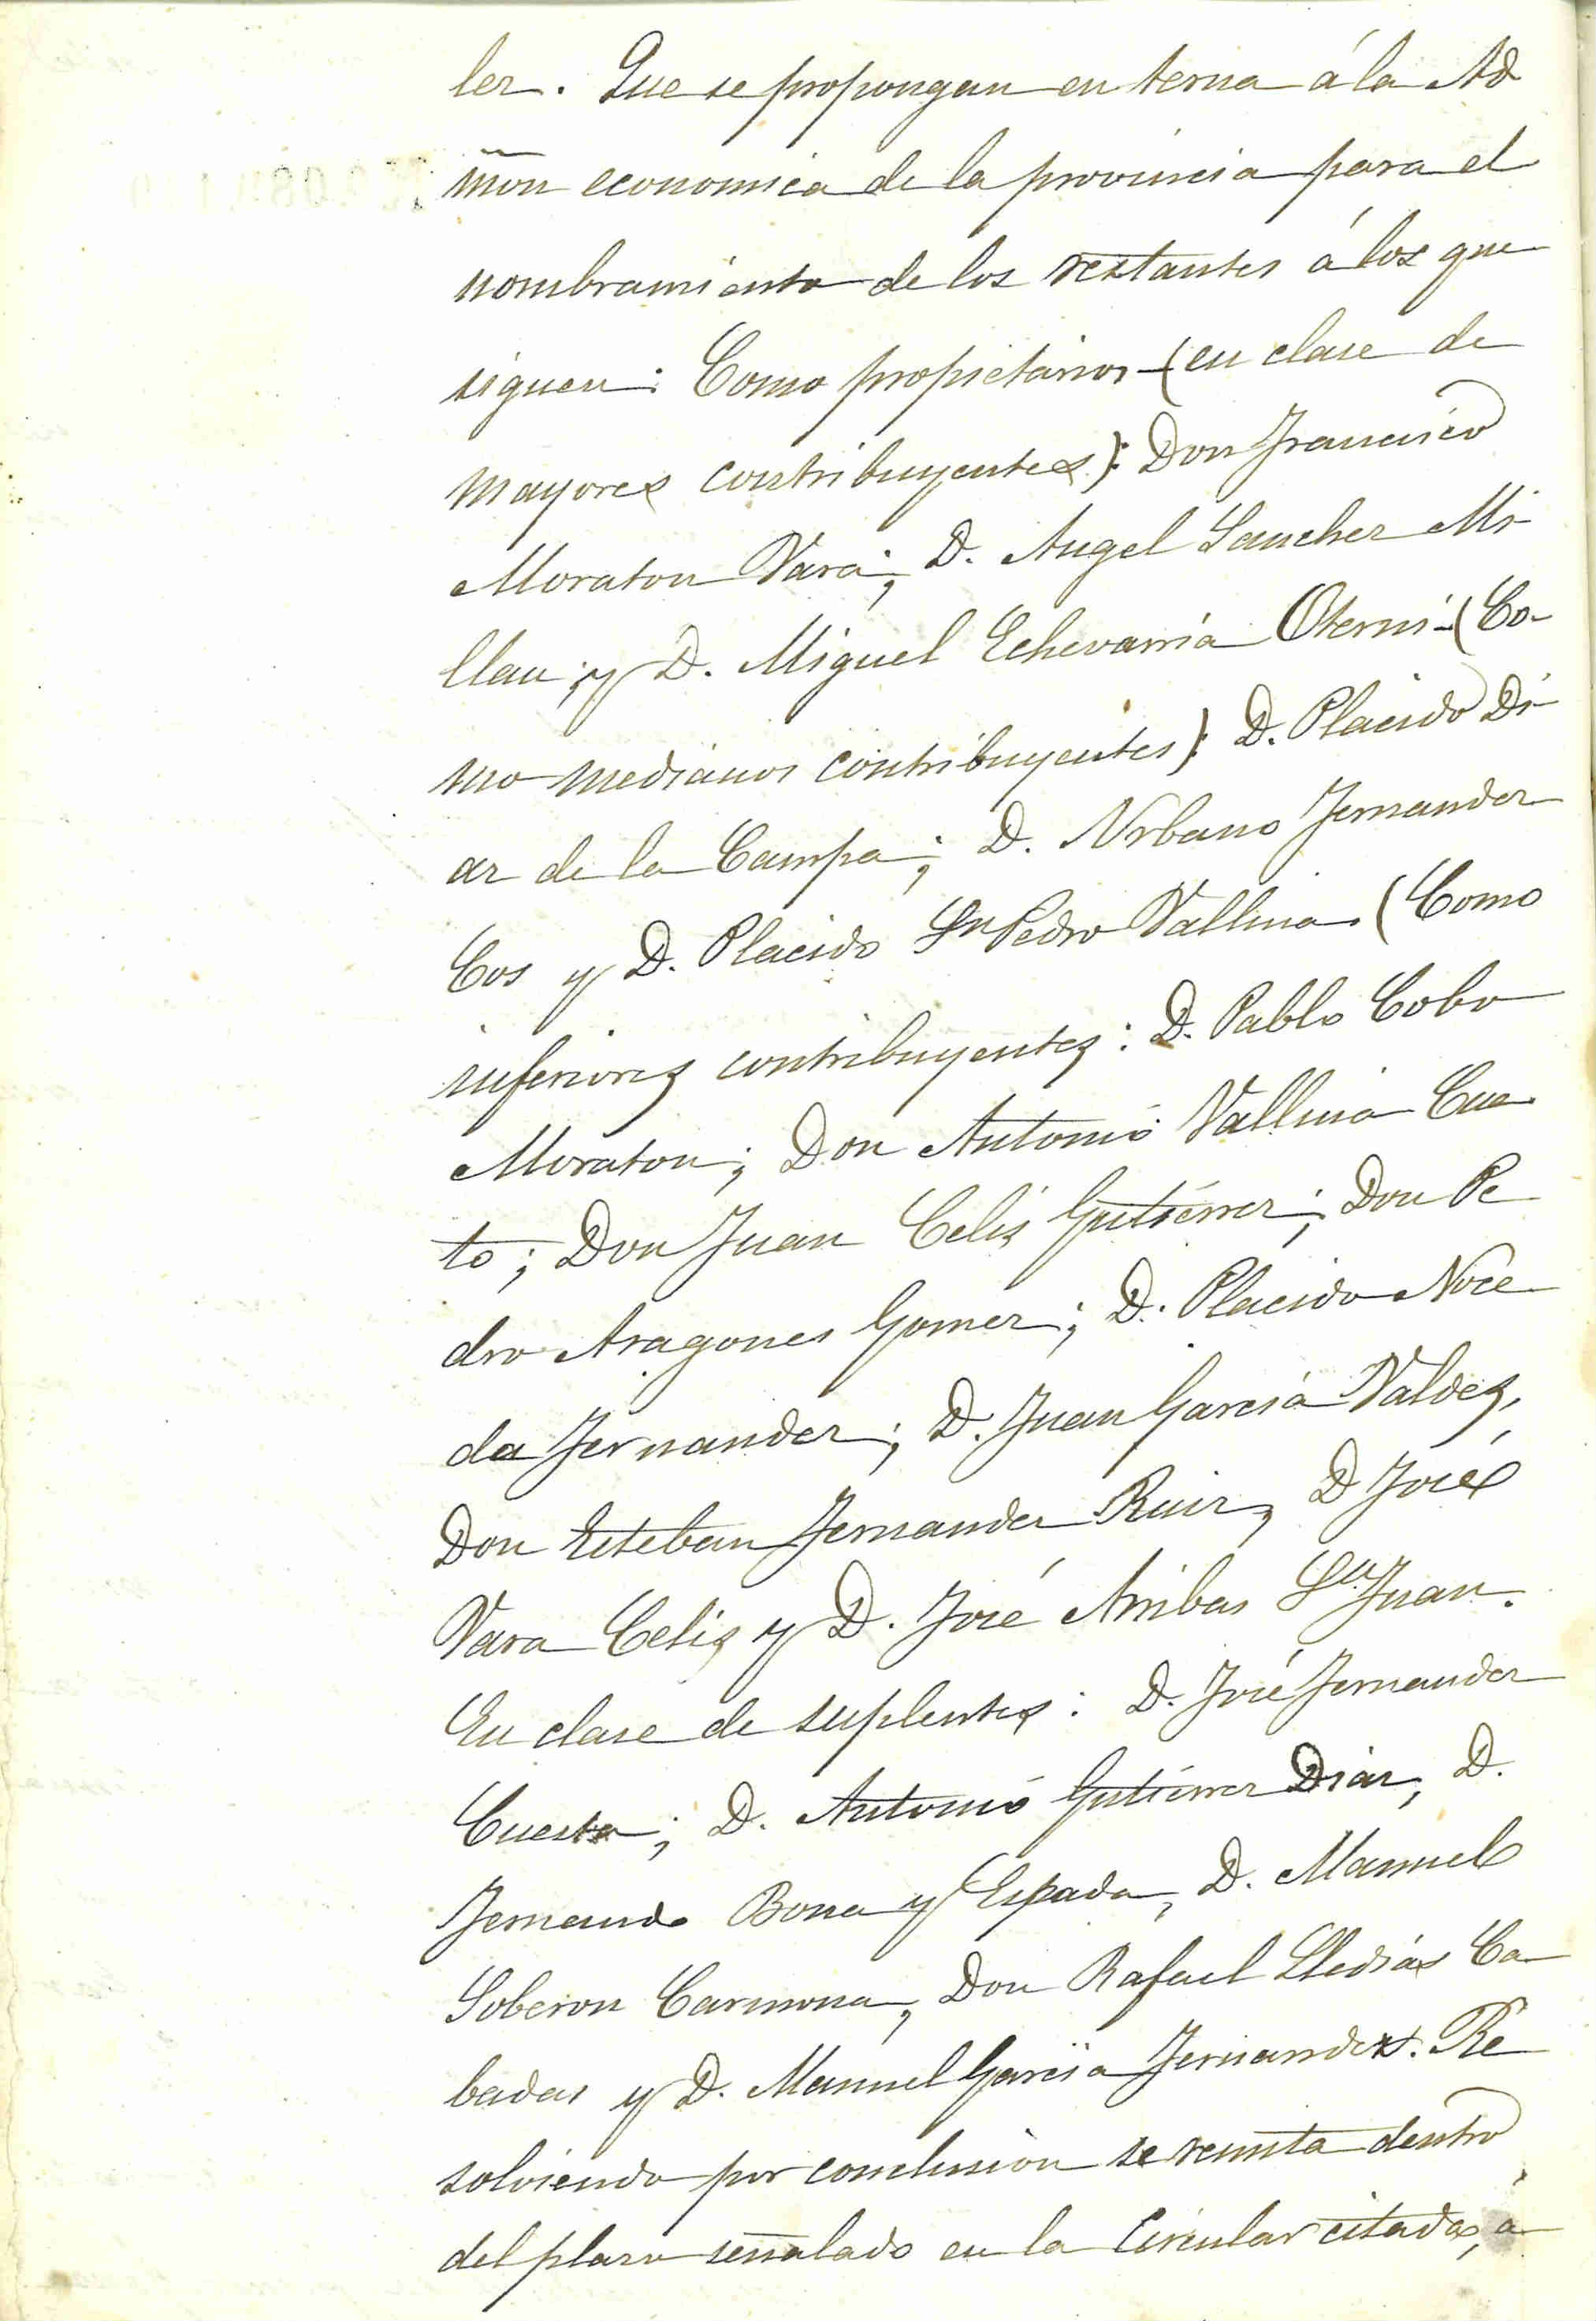 ler. Que se propongan en terna á la Ad
món economica de la provincia para el
nombramiento de los restantes á los que
siguen: Como propietarios (en clase de
mayores contribuyentes): Don Francisco
Moraton Vara; D. Angel Sanchez Mi-
llan; y D. Miguel Echevarria Oterni (Co-
mo medianos contribuyentes): D. Placido Di-
az de la Campa; D. Urbano Fernandez
Cos y D. Placido Sn Pedro Vallina (Como
inferiores contribuyentes: D. Pablo Cobo
Moraton; Don Antonio Vallina Cue
to; Don Juan Celis Gutiérrez; Don Pe
dro Aragones Gomez; D. Placido Noce
da Fernandez; D. Juan Garcia Valdes,
Don Esteban Fernandez Ruiz, D José
Vara Celis y D. José Arribas Sn Juan.
En clase de suplentes: D. José Fernandez
Cuesta; D. Antonio Gutiérrez Diaz, D.
Fernando Bona y Espada, D. Manuel
Soberon Carmona, Don Rafael Lledias Ca-
badas y D. Manuel Garcia Fernandez. Re
solviendo por conclusion se remita dentro
del plazo señalado en la Circular citada, á